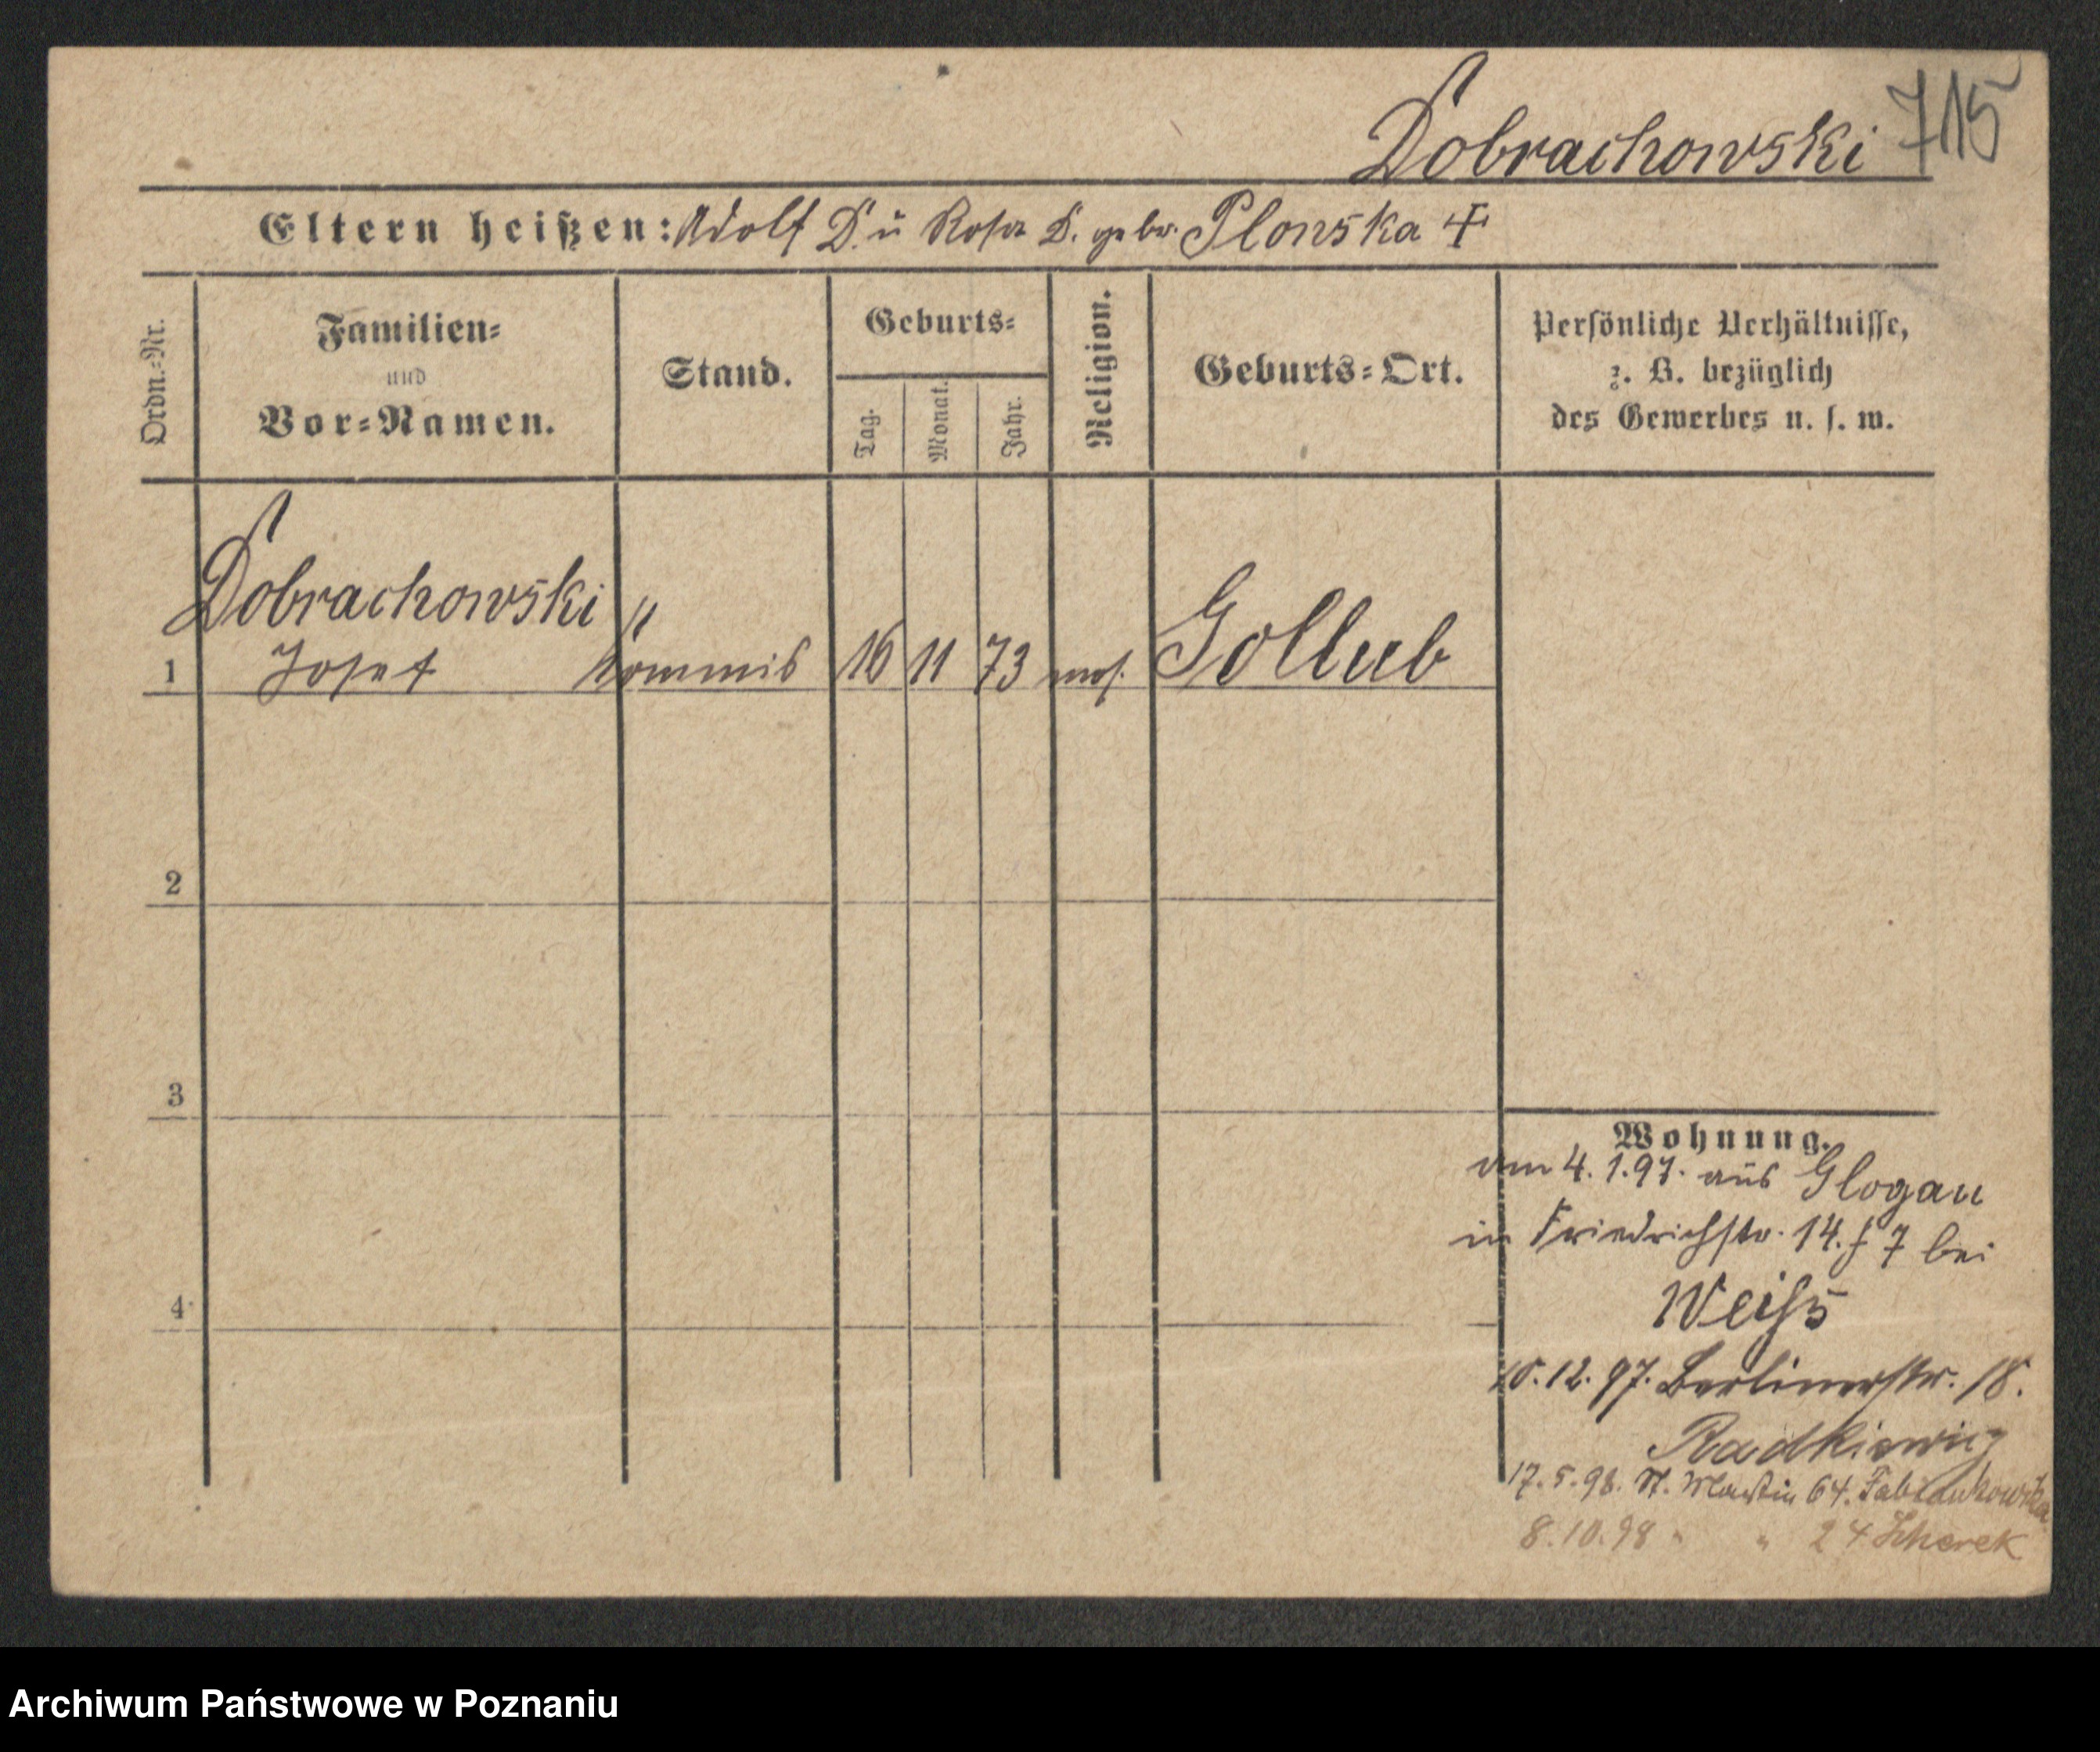 Dobrachowski 715
Eltern heißen: Adolf D. u Rosa D. gebr. Plonska †
Ordn.=Nr.
Familien=
und
Vor=Namen.
Stand.
Geburts=
Tag.
Monat.
Jahr.
Religion.
Geburts=Ort.
Persönliche Verhältnisse,
z. B. bezüglich
des Gewerbes u. s. w.
Dobrachowski
1 Josef Kommis 16 11 73 mos. Gollub
2
3
4
Wohnung.
am 4.1.97. aus Glogau
in Friedrichstr. 14. 7 bei
Weiss
10.12.97. Berlinerstr. 18.
Radkiewicz
17.5.98. St. Martin 64. Fabiankowska
8.10.98 " " 24 Scherek
Archiwum Państwowe w Poznaniu